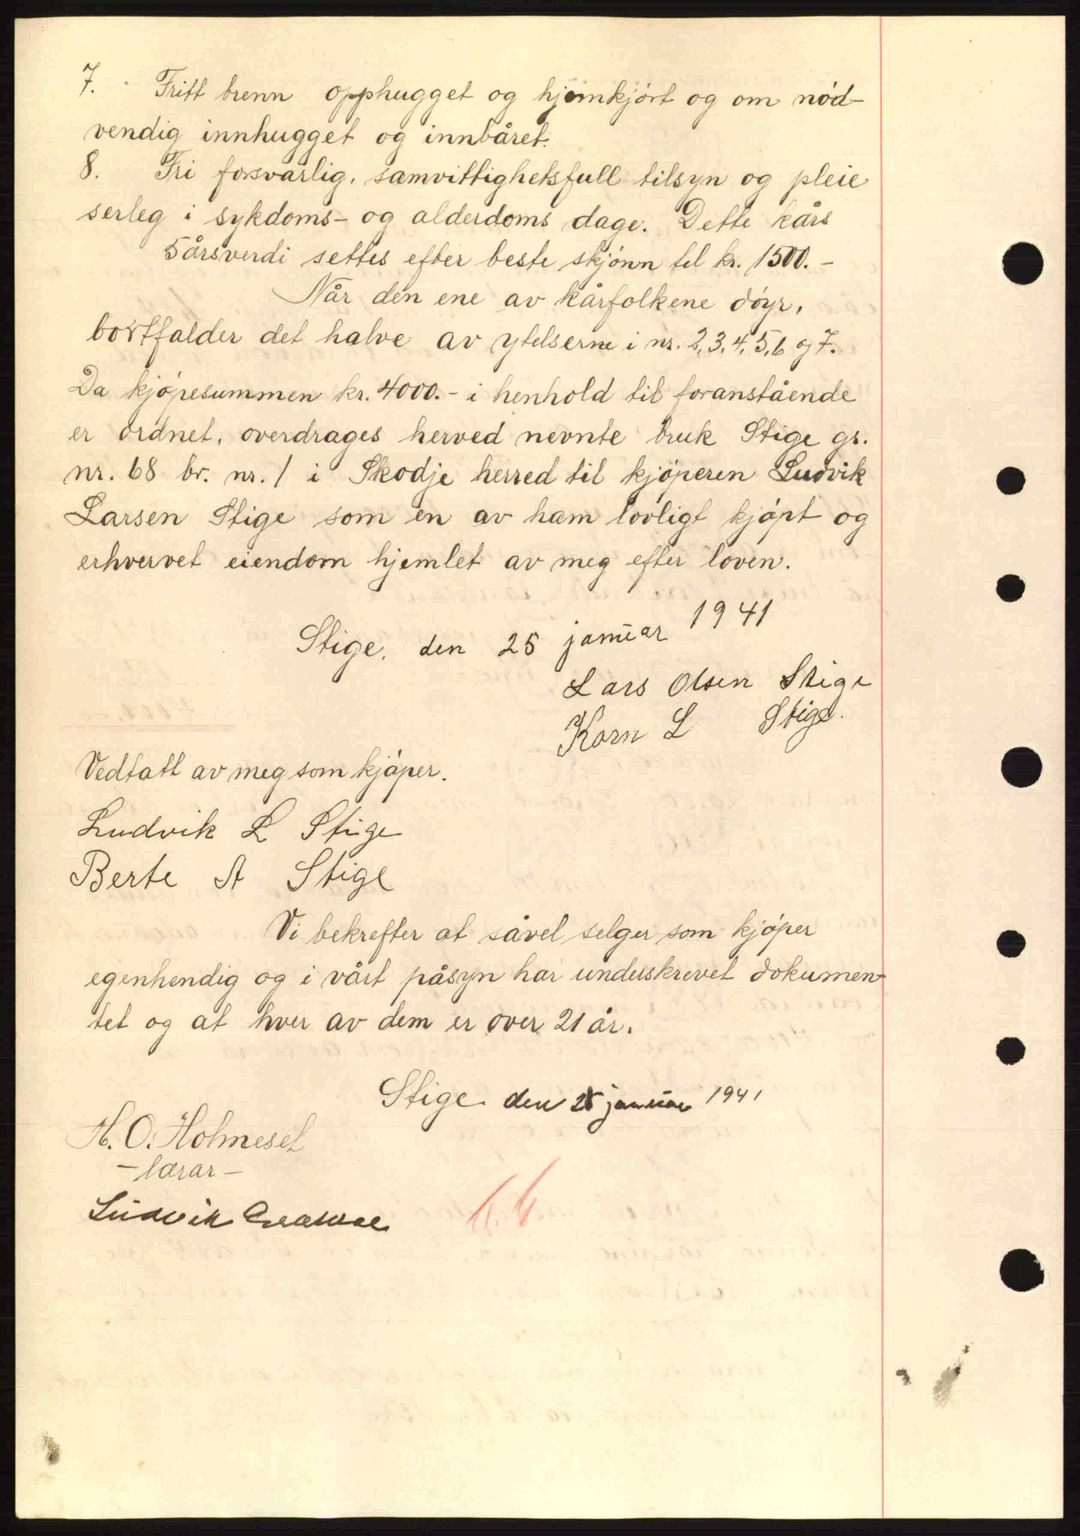 7. Fritt brenn opphugget og hjemkjört og om nöd-
vendig innhugget og innbåret.
8. Fri forsvarlig, samvittighetsfull tilsyn og pleie
serleg i sykdoms- og alderdoms dage. Dette kårs
5årsverdi settes efter beste skjönn til kr. 1500.-
Når den ene av kårfolkene döyr,
bortfalder det halve av ytelserne i nr. 2,3,4,5,6 og 7.
Da kjöpesummen kr. 4000.- i henhold til foranstående
er ordnet, overdrages herved nevnte bruk Stige gr.
nr. 68 br. nr. 1 i Skodje herred til kjöperen Ludvik
Larsen Stige som en av ham lovligt kjöpt og
erhvervet eiendom hjemlet av meg efter loven.
Stige, den 25 januar 1941
Lars Olsen Stige
Karn L Stige.
Vedtatt av meg som kjöper.
Ludvik L Stige
Berte A Stige
Vi bekrefter at såvel selger som kjöper
egenhendig og i vårt påsyn har underskrevet dokumen-
tet og at hver av dem er over 21 år.
Stige den 25 januar 1941
H. O. Holmeset
- lærar -
Ludvik